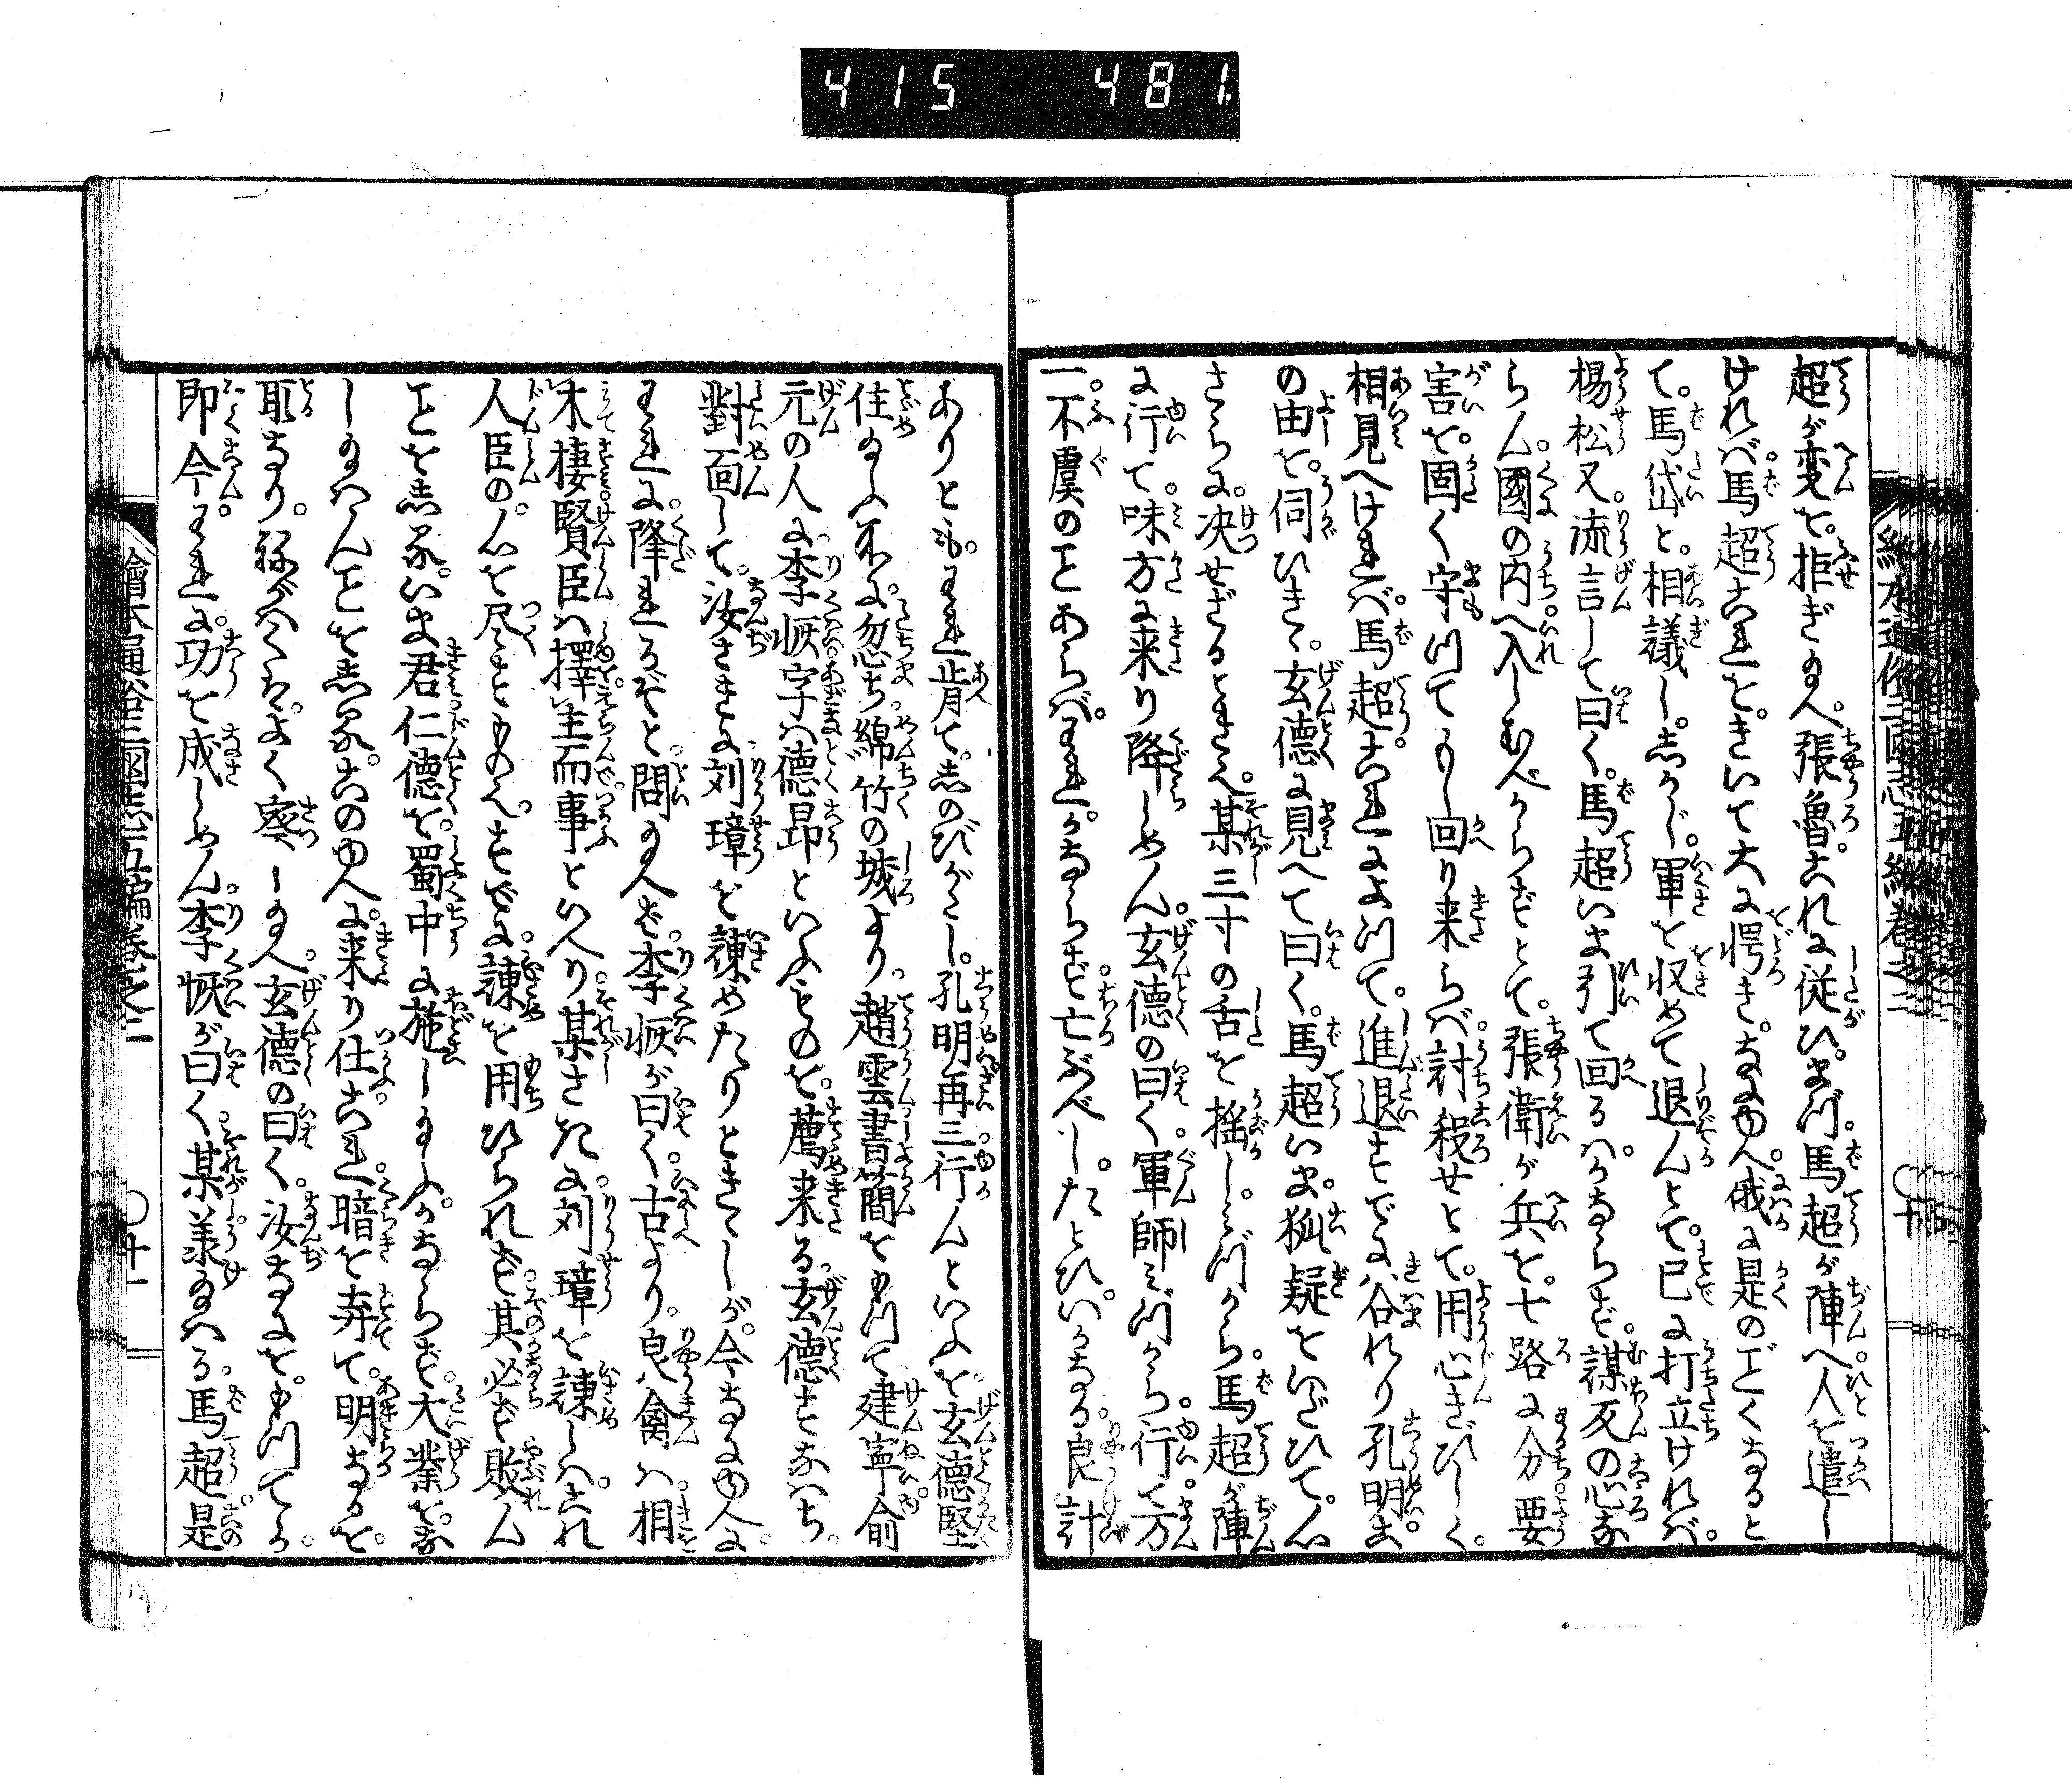 415 481
超が変を。拒ぎ給へ。張魯。これに従ひ。まづ。馬超が陣へ。人を遣し
ければ。馬超これを。きいて大に愕き。なにゆへ。俄に是のごくなると
て。馬岱と。相議し。しかじ。軍を収めて退んとて。已に打立ければ。
楊松又。流言して曰く。馬超いま引て回るハ。かならず。謀反の心な
らん。國の内へ。入しむべからずとて。張衛が兵を。七路に分ち。要
害を。固く守つてもし回り来らバ。討殺せとて。用心きびしく。
相見へければ。馬超。これによつて。進退すでに谷れり孔明ま
の由を。伺ひきく。玄德に見へて曰く。馬超いま。狐疑をいだひて。心
さらに。决せざるときく。某三寸の舌を揺し。みづから。馬超が陣
に行て。味方に来り降しめん。玄德の曰く。軍師みづから。行て。万
一。不虞のことあらば。われ。かならず。亡ぶべし。たとひ。いかなる。良計
ありとも。われ肯て。しのびがたし。孔明再三行んといふを。玄德堅
住給ふ所に。忽ち綿竹の城より。趙雲書簡をもつて。建寧俞
元の人に李恢字ハ德昂といふものを。薦来る。玄德すなハち。
對面して。汝さきに刘璋を諌めたりときゝしが。今なにゆへに。
われに。降れるぞと。問給へば。李恢が曰く。古より。良禽ハ。相
木棲。賢臣ハ擇主而事といへり。某さきに。刘璋を諌しハ。これ
人臣の。心を尽すともへ。すでに。諌を用ひられず。其必ず敗ん
ことをしる。いま君仁德を。蜀中に施し給ふ。かならず。大業を。な
し給ハんことをしる。このゆへに。来り仕ふ。これ。暗を弃て。明なるを。
取なり。ねがハくハ。よく察し給へ。玄德の曰く。汝なにを。もつてか。
即今。われに。功を成しめん。李恢が曰く。某羕給ハる。馬超。是
繪本通俗三國志五編巻之二
〇十
繪本通俗三國志五編巻之二
〇十一